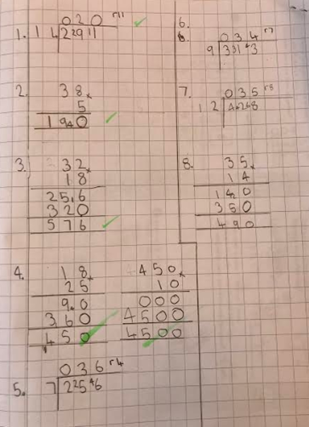 020 r11
1. 14 2291
2. 38
5
190
3. 32
18
256
320
576
4. 18
25
90
360
450
450
10
000
4500
4500
036 r4
5. 7 2256
6.
8. 034 r7
9 313
7. 035 r8
12 428
8. 35
14
140
350
490